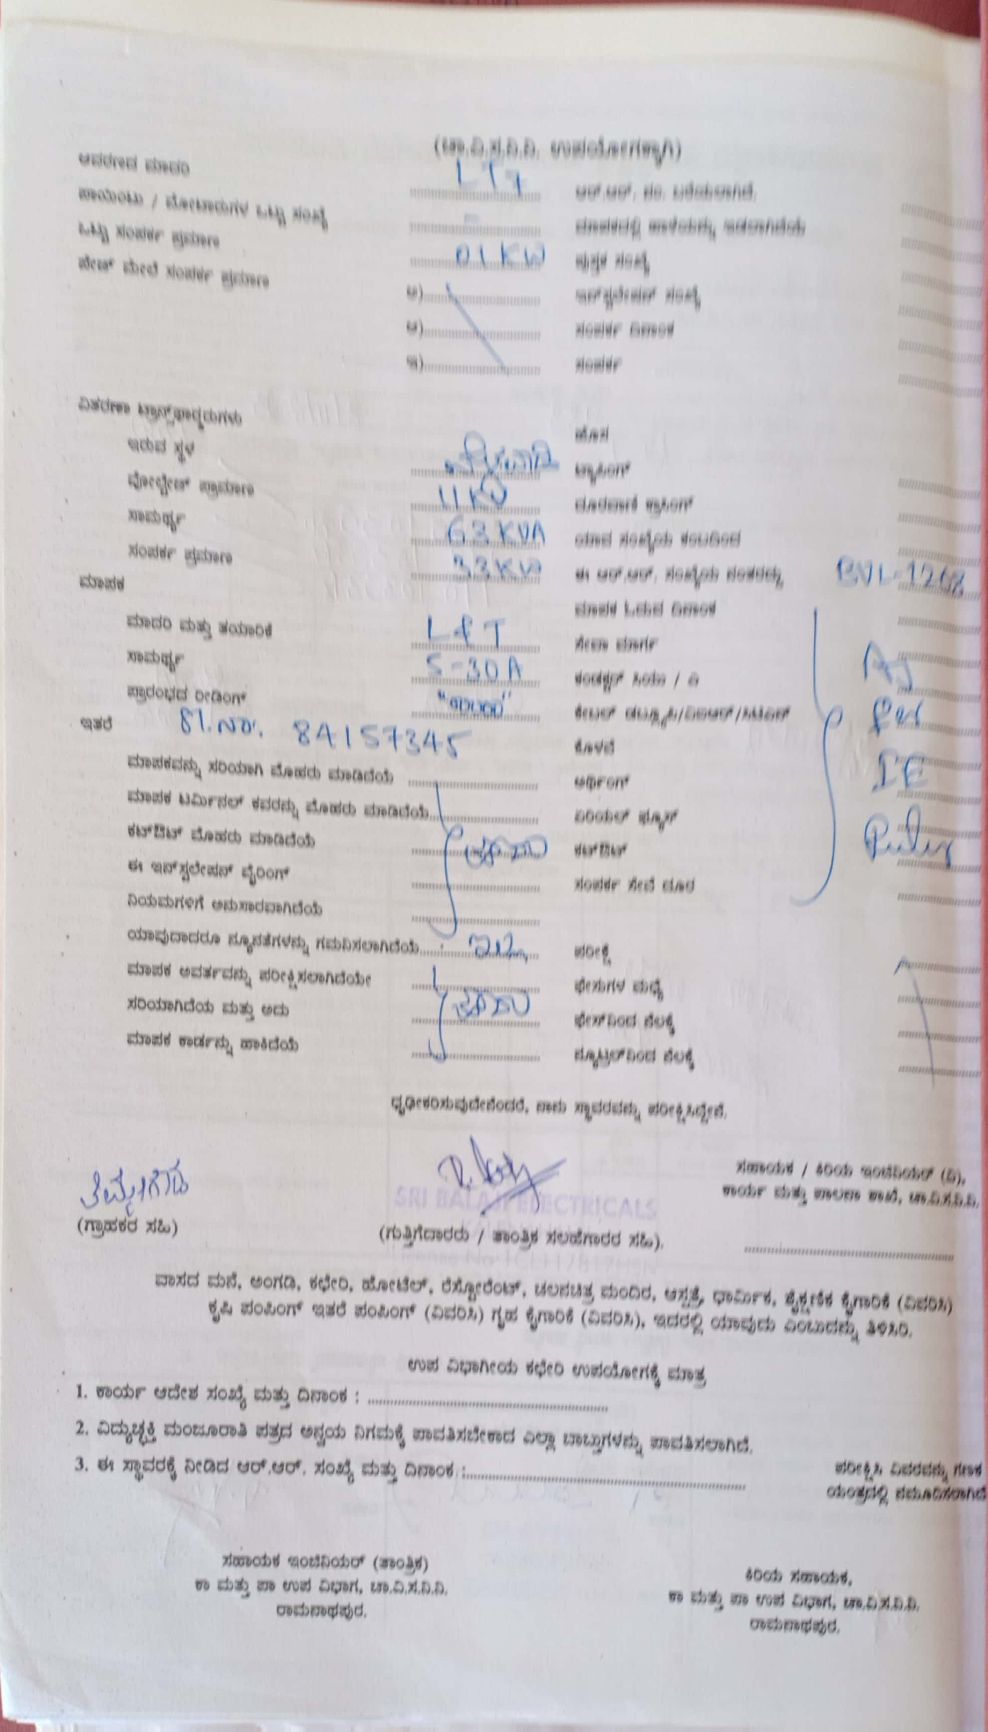 (ಚಾ.ವಿ.ಸ.ನಿ.ನಿ. ಉಪಯೋಗಕ್ಕಾಗಿ)
ಆವರಣದ ಮಾದರಿ LT1 ಆರ್.ಆರ್. ನಂ. ಬರೆಯಲಾಗಿದೆ.
ಪಾಯಿಂಟು / ಮೋಟಾರುಗಳ ಒಟ್ಟು ಸಂಖ್ಯೆ -
ಒಟ್ಟು ಸಂಪರ್ಕ ಪ್ರಮಾಣ 01 KW ಪುಸ್ತಕ ಸಂಖ್ಯೆ
ಪೇಜ್ ಮೇಲೆ ಸಂಪರ್ಕ ಪ್ರಮಾಣ ಅ) ಇನ್‌ಸ್ಟಲೇಷನ್ ಸಂಖ್ಯೆ
ಆ) ಸಂಪರ್ಕ ದಿನಾಂಕ
ಇ) ಸಂಪರ್ಕ
ವಿತರಣಾ ಟ್ರಾನ್ಸ್‌ಫಾರ್ಮರುಗಳು ಹೊಸ
ಇರುವ ಸ್ಥಳ ಟ್ಯಾಪಿಂಗ್
ವೋಲ್ಟೇಜ್ ಪ್ರಾಮಾಣ 11 KV
ಸಾಮರ್ಥ್ಯ 63 KVA ಯಾವ ಸಂಖ್ಯೆಯ ಕಂಬದಿಂದ
ಸಂಪರ್ಕ ಪ್ರಮಾಣ 33 KW ಈ ಆರ್.ಆರ್. ಸಂಖ್ಯೆಯ ನಂತರದ್ದು BVL-1268
ಮಾಪಕ ಮಾಪಕ ಓದುವ ದಿನಾಂಕ
ಮಾದರಿ ಮತ್ತು ತಯಾರಿಕೆ L & T ಸೇವಾ ಮಾರ್ಗ
ಸಾಮರ್ಥ್ಯ 5-30 A
ಪ್ರಾರಂಭದ ರೀಡಿಂಗ್
ಇತರೆ Sl.No. 84157345 ಕೊಳವೆ
ಮಾಪಕವನ್ನು ಸರಿಯಾಗಿ ಮೊಹರು ಮಾಡಿದೆಯೆ ಅರ್ಥಿಂಗ್
ಮಾಪಕ ಟರ್ಮಿನಲ್ ಕವರನ್ನು ಮೊಹರು ಮಾಡಿದೆಯೆ IE ಏರಿಯಲ್ ಫ್ಯೂಸ್
ಕಟ್‌ಔಟ್ ಮೊಹರು ಮಾಡಿದೆಯೆ ಹೌದು ಕಟ್‌ಔಟ್
ಈ ಇನ್‌ಸ್ಟಲೇಷನ್ ವೈರಿಂಗ್ ಸಂಪರ್ಕ ಸೇವೆ ದೂರ
ನಿಯಮಗಳಿಗೆ ಅನುಸಾರವಾಗಿದೆಯೆ
ಯಾವುದಾದರೂ ನ್ಯೂನತೆಗಳನ್ನು ಗಮನಿಸಲಾಗಿದೆಯೆ ಇಲ್ಲ ಪರೀಕ್ಷೆ
ಮಾಪಕ ಆವರ್ತವನ್ನು ಪರೀಕ್ಷಿಸಲಾಗಿದೆಯೇ ಫೇಸುಗಳ ಮಧ್ಯೆ
ಸರಿಯಾಗಿದೆಯೆ ಮತ್ತು ಅದು ಹೌದು ಫೇಸ್‌ನಿಂದ ನೆಲಕ್ಕೆ
ಮಾಪಕ ಕಾರ್ಡನ್ನು ಹಾಕಿದೆಯೆ ನ್ಯೂಟ್ರಲ್‌ನಿಂದ ನೆಲಕ್ಕೆ
ಧೃಢೀಕರಿಸುವುದೇನೆಂದರೆ, ನಾನು ಸ್ಥಾವರವನ್ನು ಪರೀಕ್ಷಿಸಿದ್ದೇನೆ.
ತಿಮ್ಮೇಗೌಡ ಸಹಾಯಕ / ಕಿರಿಯ ಇಂಜಿನಿಯರ್ (ವಿ),
SRI BALAJI ELECTRICALS ಕಾರ್ಯ ಮತ್ತು ಪಾಲನಾ ಶಾಖೆ, ಚಾ.ವಿ.ಸ.ನಿ.ನಿ.
(ಗ್ರಾಹಕರ ಸಹಿ) (ಗುತ್ತಿಗೆದಾರರು / ತಾಂತ್ರಿಕ ಸಲಹೆಗಾರರ ಸಹಿ).
ವಾಸದ ಮನೆ, ಅಂಗಡಿ, ಕಛೇರಿ, ಹೋಟೆಲ್, ರೆಸ್ಟೋರೆಂಟ್, ಚಲನಚಿತ್ರ ಮಂದಿರ, ಆಸ್ಪತ್ರೆ, ಧಾರ್ಮಿಕ, ಶೈಕ್ಷಣಿಕ ಕೈಗಾರಿಕೆ (ವಿವರಿಸಿ)
ಕೃಷಿ ಪಂಪಿಂಗ್ ಇತರೆ ಪಂಪಿಂಗ್ (ವಿವರಿಸಿ) ಗೃಹ ಕೈಗಾರಿಕೆ (ವಿವರಿಸಿ), ಇದರಲ್ಲಿ ಯಾವುದು ಎಂಬುದನ್ನು ತಿಳಿಸಿರಿ.
ಉಪ ವಿಭಾಗೀಯ ಕಛೇರಿ ಉಪಯೋಗಕ್ಕೆ ಮಾತ್ರ
1. ಕಾರ್ಯ ಆದೇಶ ಸಂಖ್ಯೆ ಮತ್ತು ದಿನಾಂಕ :
2. ವಿದ್ಯುಚ್ಛಕ್ತಿ ಮಂಜೂರಾತಿ ಪತ್ರದ ಅನ್ವಯ ನಿಗಮಕ್ಕೆ ಪಾವತಿಸಬೇಕಾದ ಎಲ್ಲಾ ಬಾಬ್ತುಗಳನ್ನು ಪಾವತಿಸಲಾಗಿದೆ.
3. ಈ ಸ್ಥಾವರಕ್ಕೆ ನೀಡಿದ ಆರ್.ಆರ್. ಸಂಖ್ಯೆ ಮತ್ತು ದಿನಾಂಕ : ಪರೀಕ್ಷಿಸಿ ವಿವರವನ್ನು ಗಣಕ
ಯಂತ್ರದಲ್ಲಿ ನಮೂದಿಸಲಾಗಿದೆ
ಸಹಾಯಕ ಇಂಜಿನಿಯರ್ (ತಾಂತ್ರಿಕ) ಕಿರಿಯ ಸಹಾಯಕ,
ಕಾ ಮತ್ತು ಪಾ ಉಪ ವಿಭಾಗ, ಚಾ.ವಿ.ಸ.ನಿ.ನಿ. ಕಾ ಮತ್ತು ಪಾ ಉಪ ವಿಭಾಗ, ಚಾ.ವಿ.ಸ.ನಿ.ನಿ.
ರಾಮನಾಥಪುರ. ರಾಮನಾಥಪುರ.